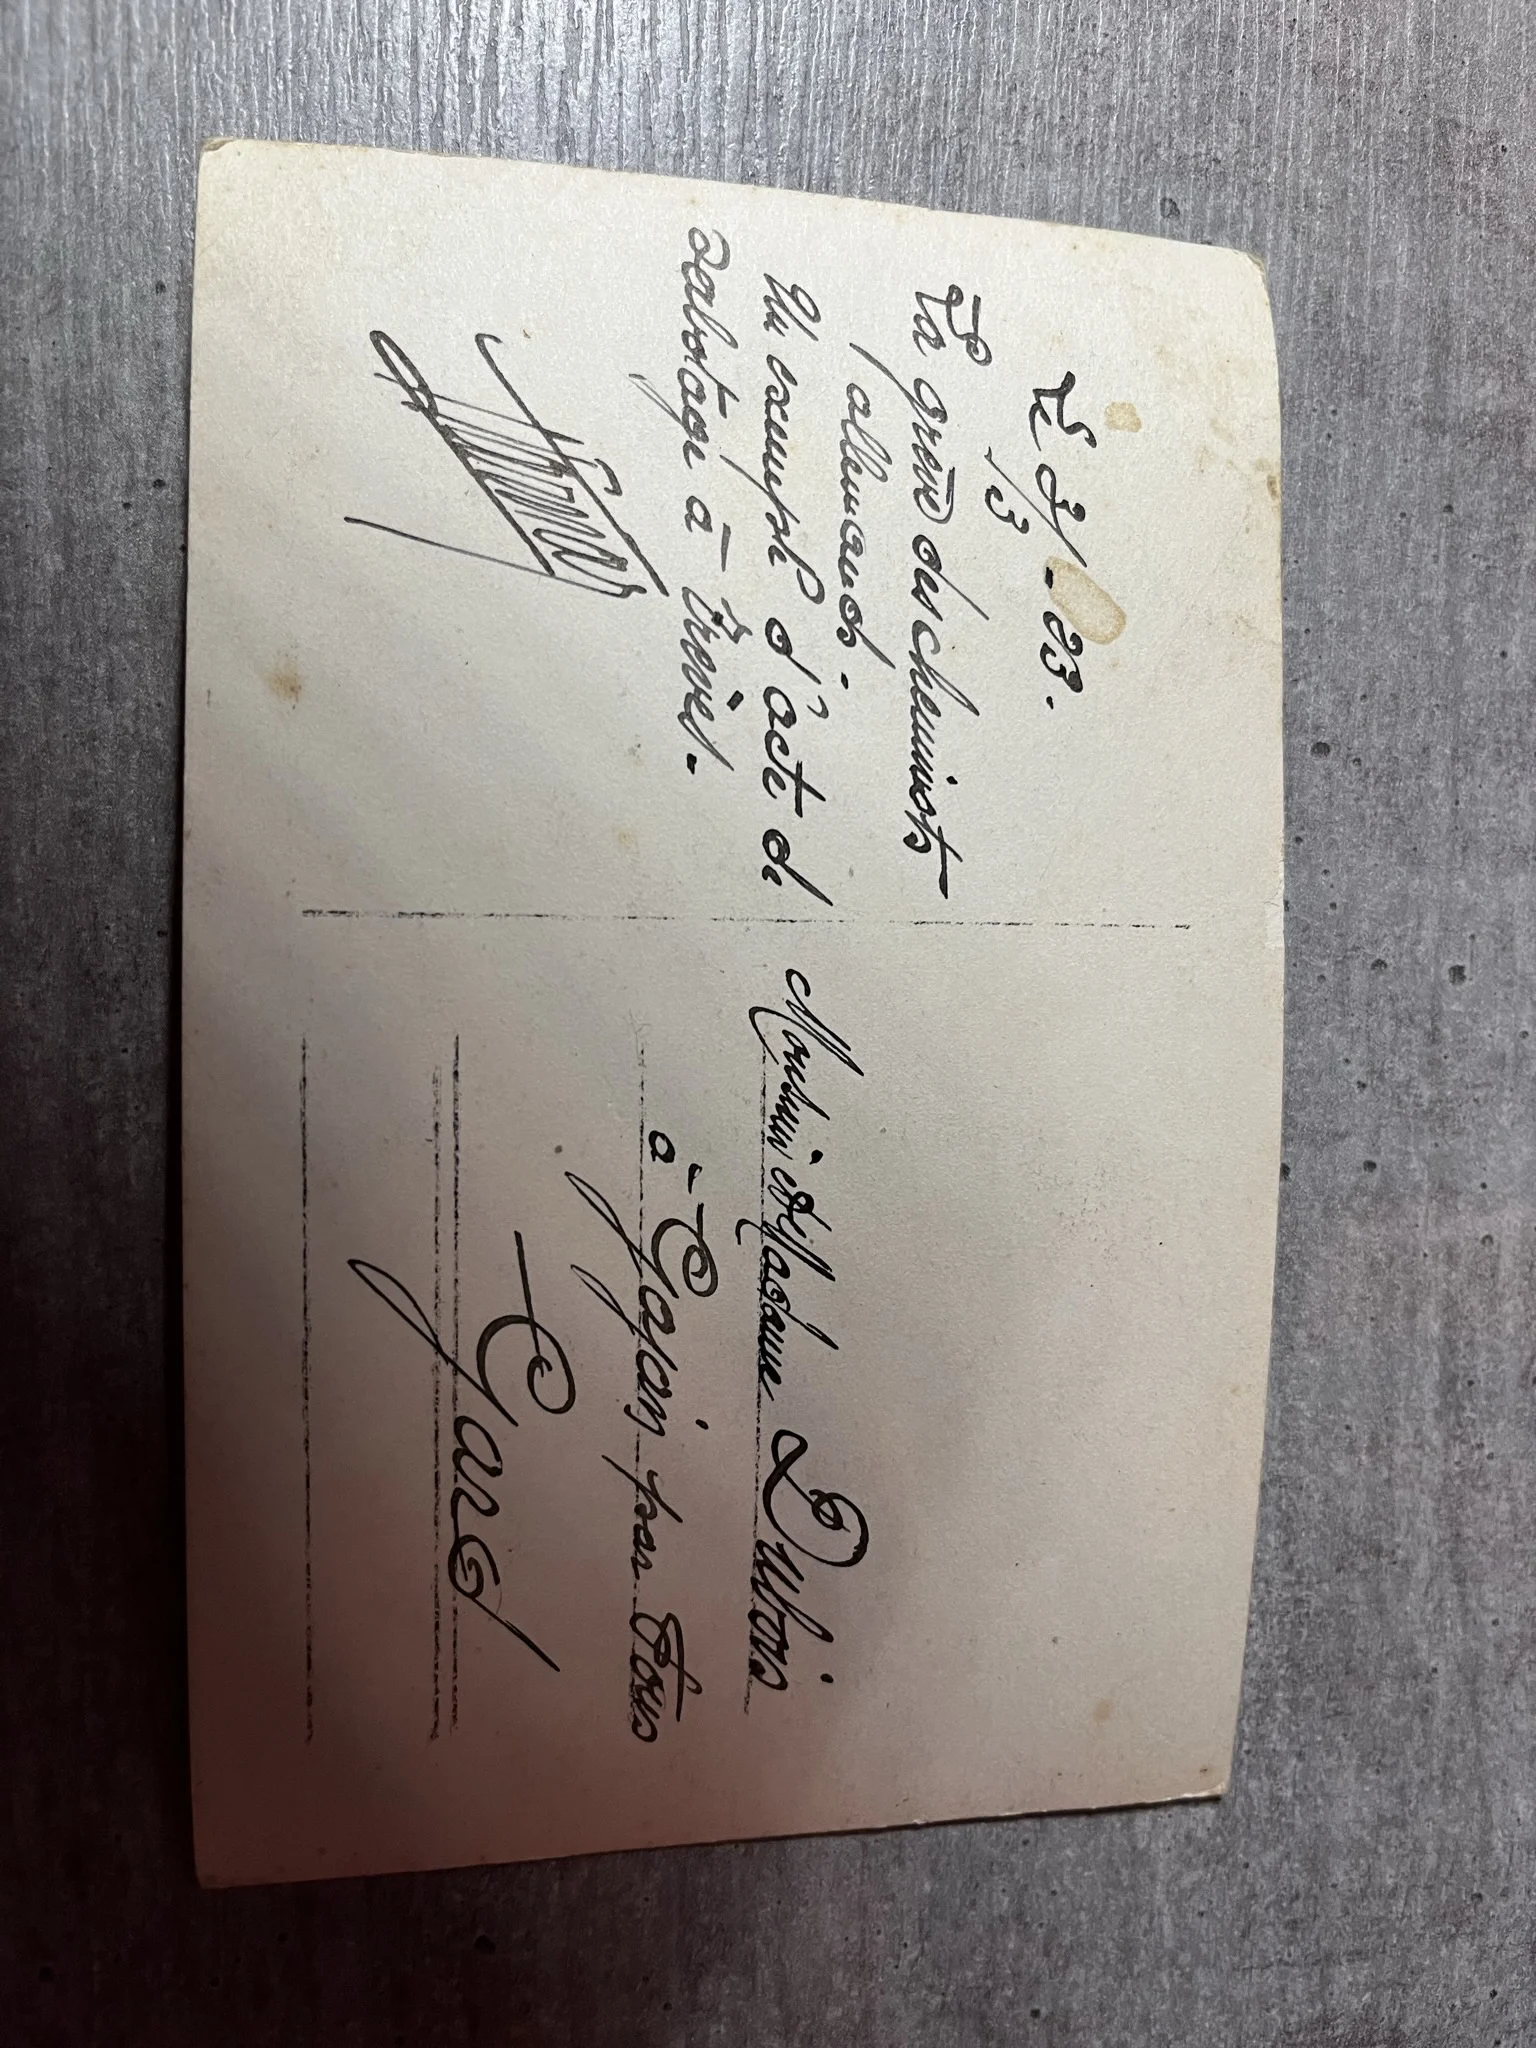 Le 3/3 - 23.
La grève des cheminots
allemands.
Un exemple d'acte de
sabotage à Trèves.
Monsieur et Madame Dubois
à Gajan par Fons
Gard